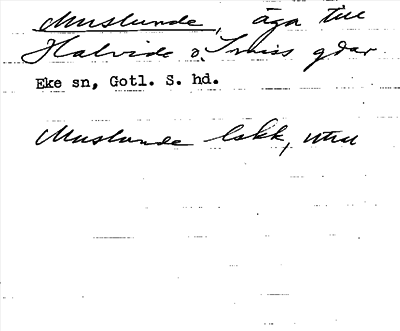 Muslunde, äga till
Halvide o. Smiss gdar
Eke sn, Gotl. S. hd.
Muslunde lokk, utru